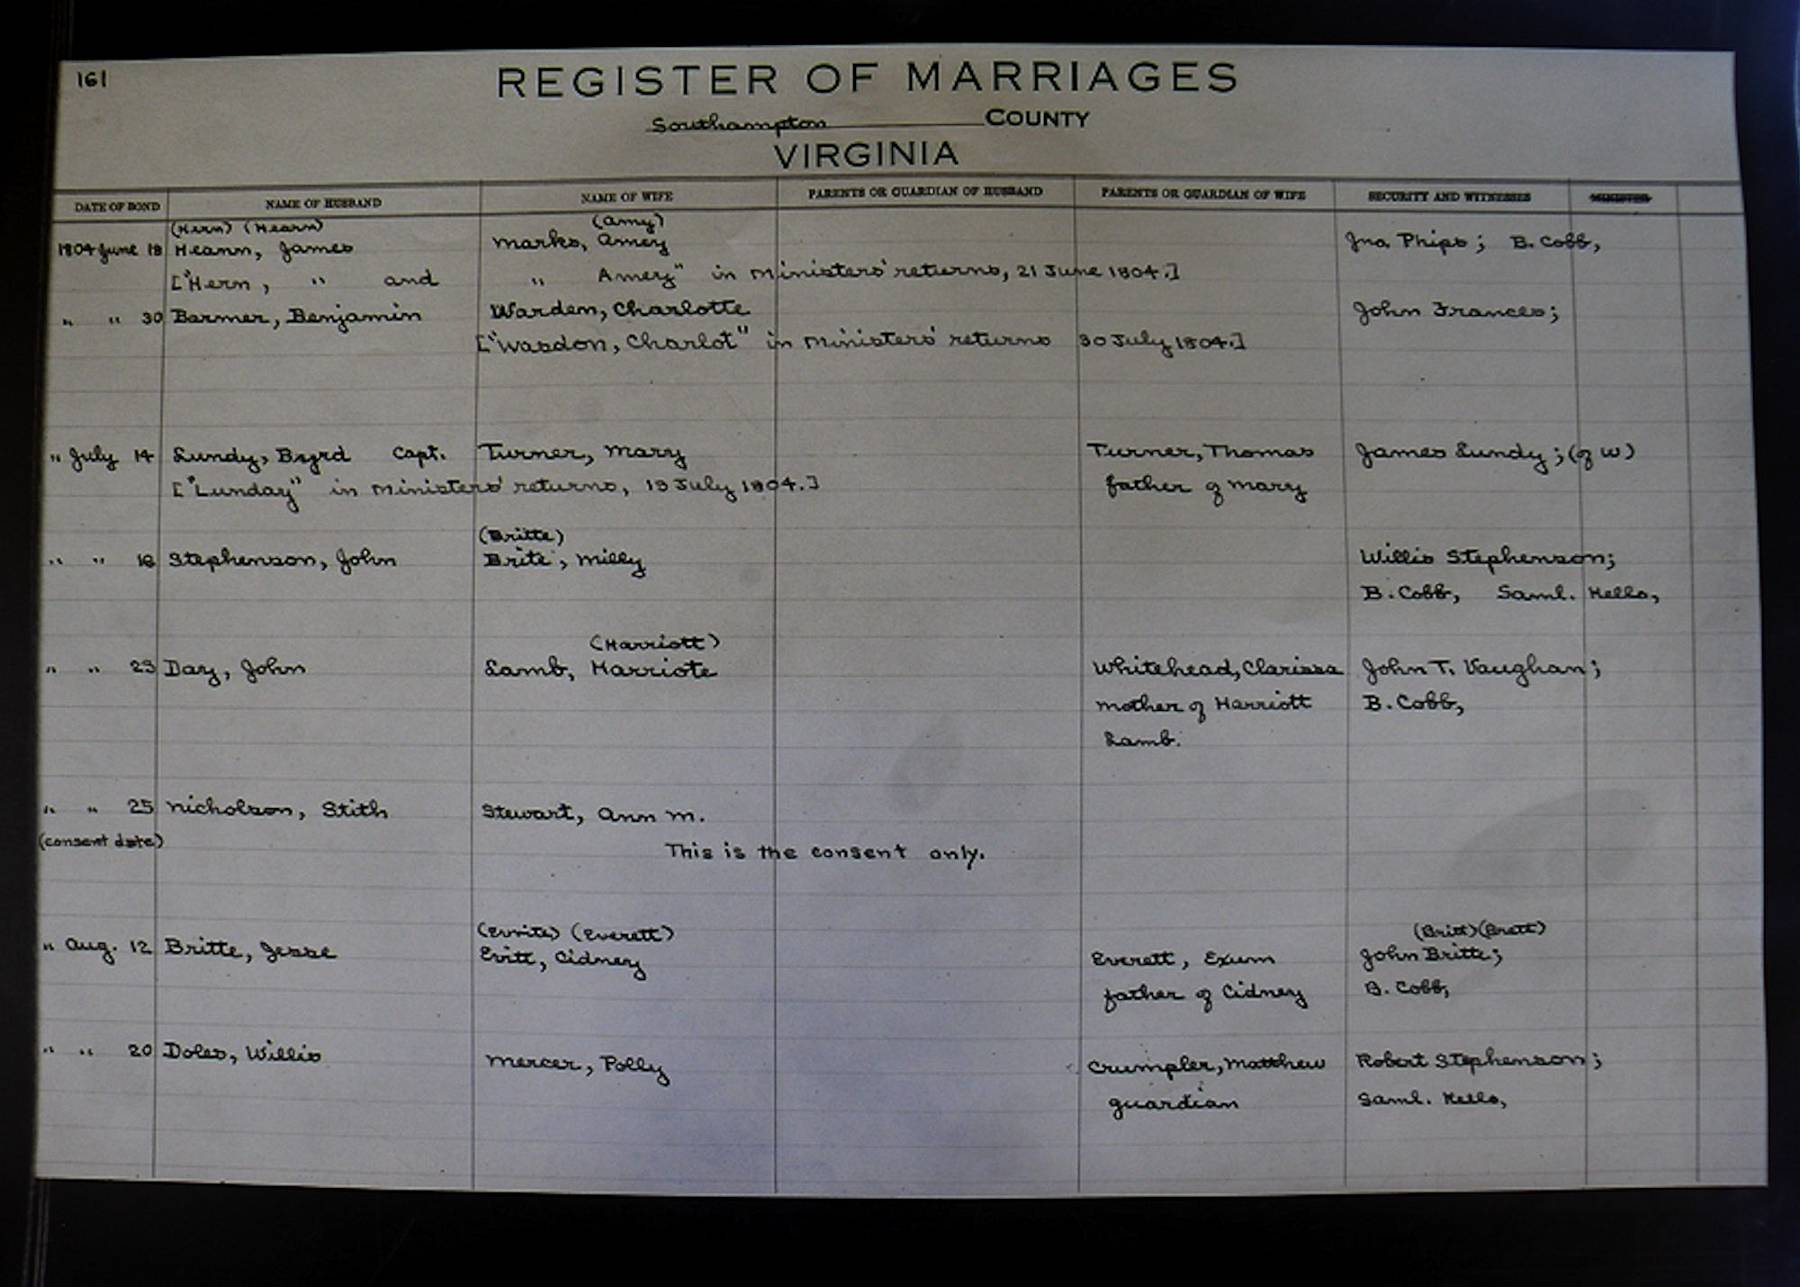 161
REGISTER OF MARRIAGES
Southampton COUNTY
VIRGINIA
DATE OF BOND NAME OF HUSBAND NAME OF WIFE PARENTS OR GUARDIAN OF HUSBAND PARENTS OR GUARDIAN OF WIFE SECURITY AND WITNESSES MINISTER
(Hern) (Hearn) (Amy)
1804 June 18 Heann, James Marks, Amey Jna Phips; B. Cobb,
["Hern, " and " Amey" in Ministers' returns, 21 June 1804.]
" " 30 Barmer, Benjamin Warden, Charlotte John Frances;
["Wasdon, Charlot" in Ministers' returns 30 July 1804.]
" July 14 Lundy, Byrd Capt. Turner, Mary Turner, Thomas James Lundy; (of W)
["Lunday" in Ministers' returns, 19 July 1804.] father of Mary
(Britte)
" " 16 Stephenson, John Brite, Milly Willis Stephenson;
B. Cobb, Saml. Kello,
(Harriott)
" " 23 Day, John Lamb, Harriote Whitehead, Clarissa John T. Vaughan;
mother of Harriott B. Cobb,
Lamb.
" " 25 Nicholson, Stith Stewart, Ann M.
(consent date) This is the consent only.
(Evrite) (Everett) (Britt) (Brett)
" Aug. 12 Britte, Jesse Evitt, Cidney Everett, Exum John Britte;
father of Cidney B. Cobb,
" " 20 Doles, Willis Mercer, Polly Crumpler, Matthew Robert Stephenson;
guardian Saml. Kello,